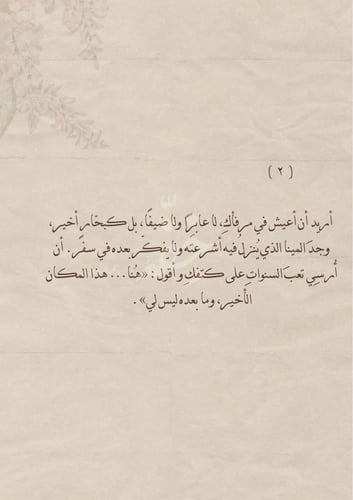 ( ٢ )
أريد أن أعيش في مرفأكِ، لا عابرا ولا ضيفًا، بل كبحّارٍ أخير،
وجدَ المينا الذي يُنزل فيه أشرعته ولا يفكر بعده في سفر. أن
أُرسي تعبَ السنواتِ على كتفكِ وأقول: «هُنا... هذا المكان
الأخير، وما بعده ليس لي».